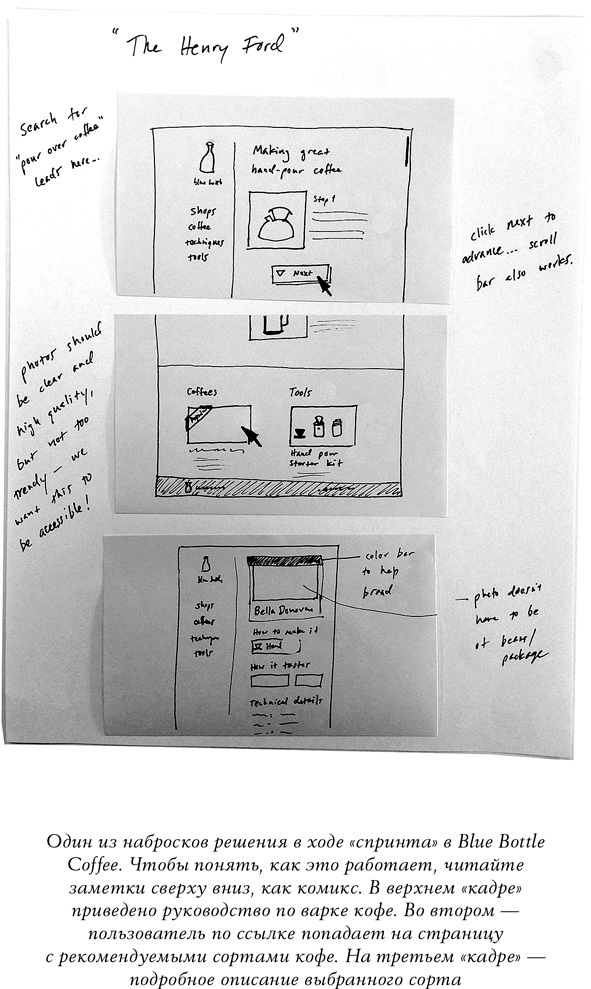 "The Henry Ford"
Search for
"pour over coffee"
leads here...
Making great
hand-pour coffee
Step 1
blue bottle
shops
coffee
techniques
tools
Next
click next to
advance... scroll
bar also works.
photos should
be clear and
high quality,
but not too
trendy – we
want this to
be accessible!
Coffees
Tools
Popular
Hand pour
Starter kit
color bar
to help
brand
Bella Donovan
shops
coffees
tools
How to make it
Hand
How it tastes
Technical details
– photo doesn't
have to be
of beans/
package
Один из набросков решения в ходе «спринта» в Blue Bottle
Coffee. Чтобы понять, как это работает, читайте
заметки сверху вниз, как комикс. В верхнем «кадре»
приведено руководство по варке кофе. Во втором —
пользователь по ссылке попадает на страницу
с рекомендуемыми сортами кофе. На третьем «кадре» —
подробное описание выбранного сорта